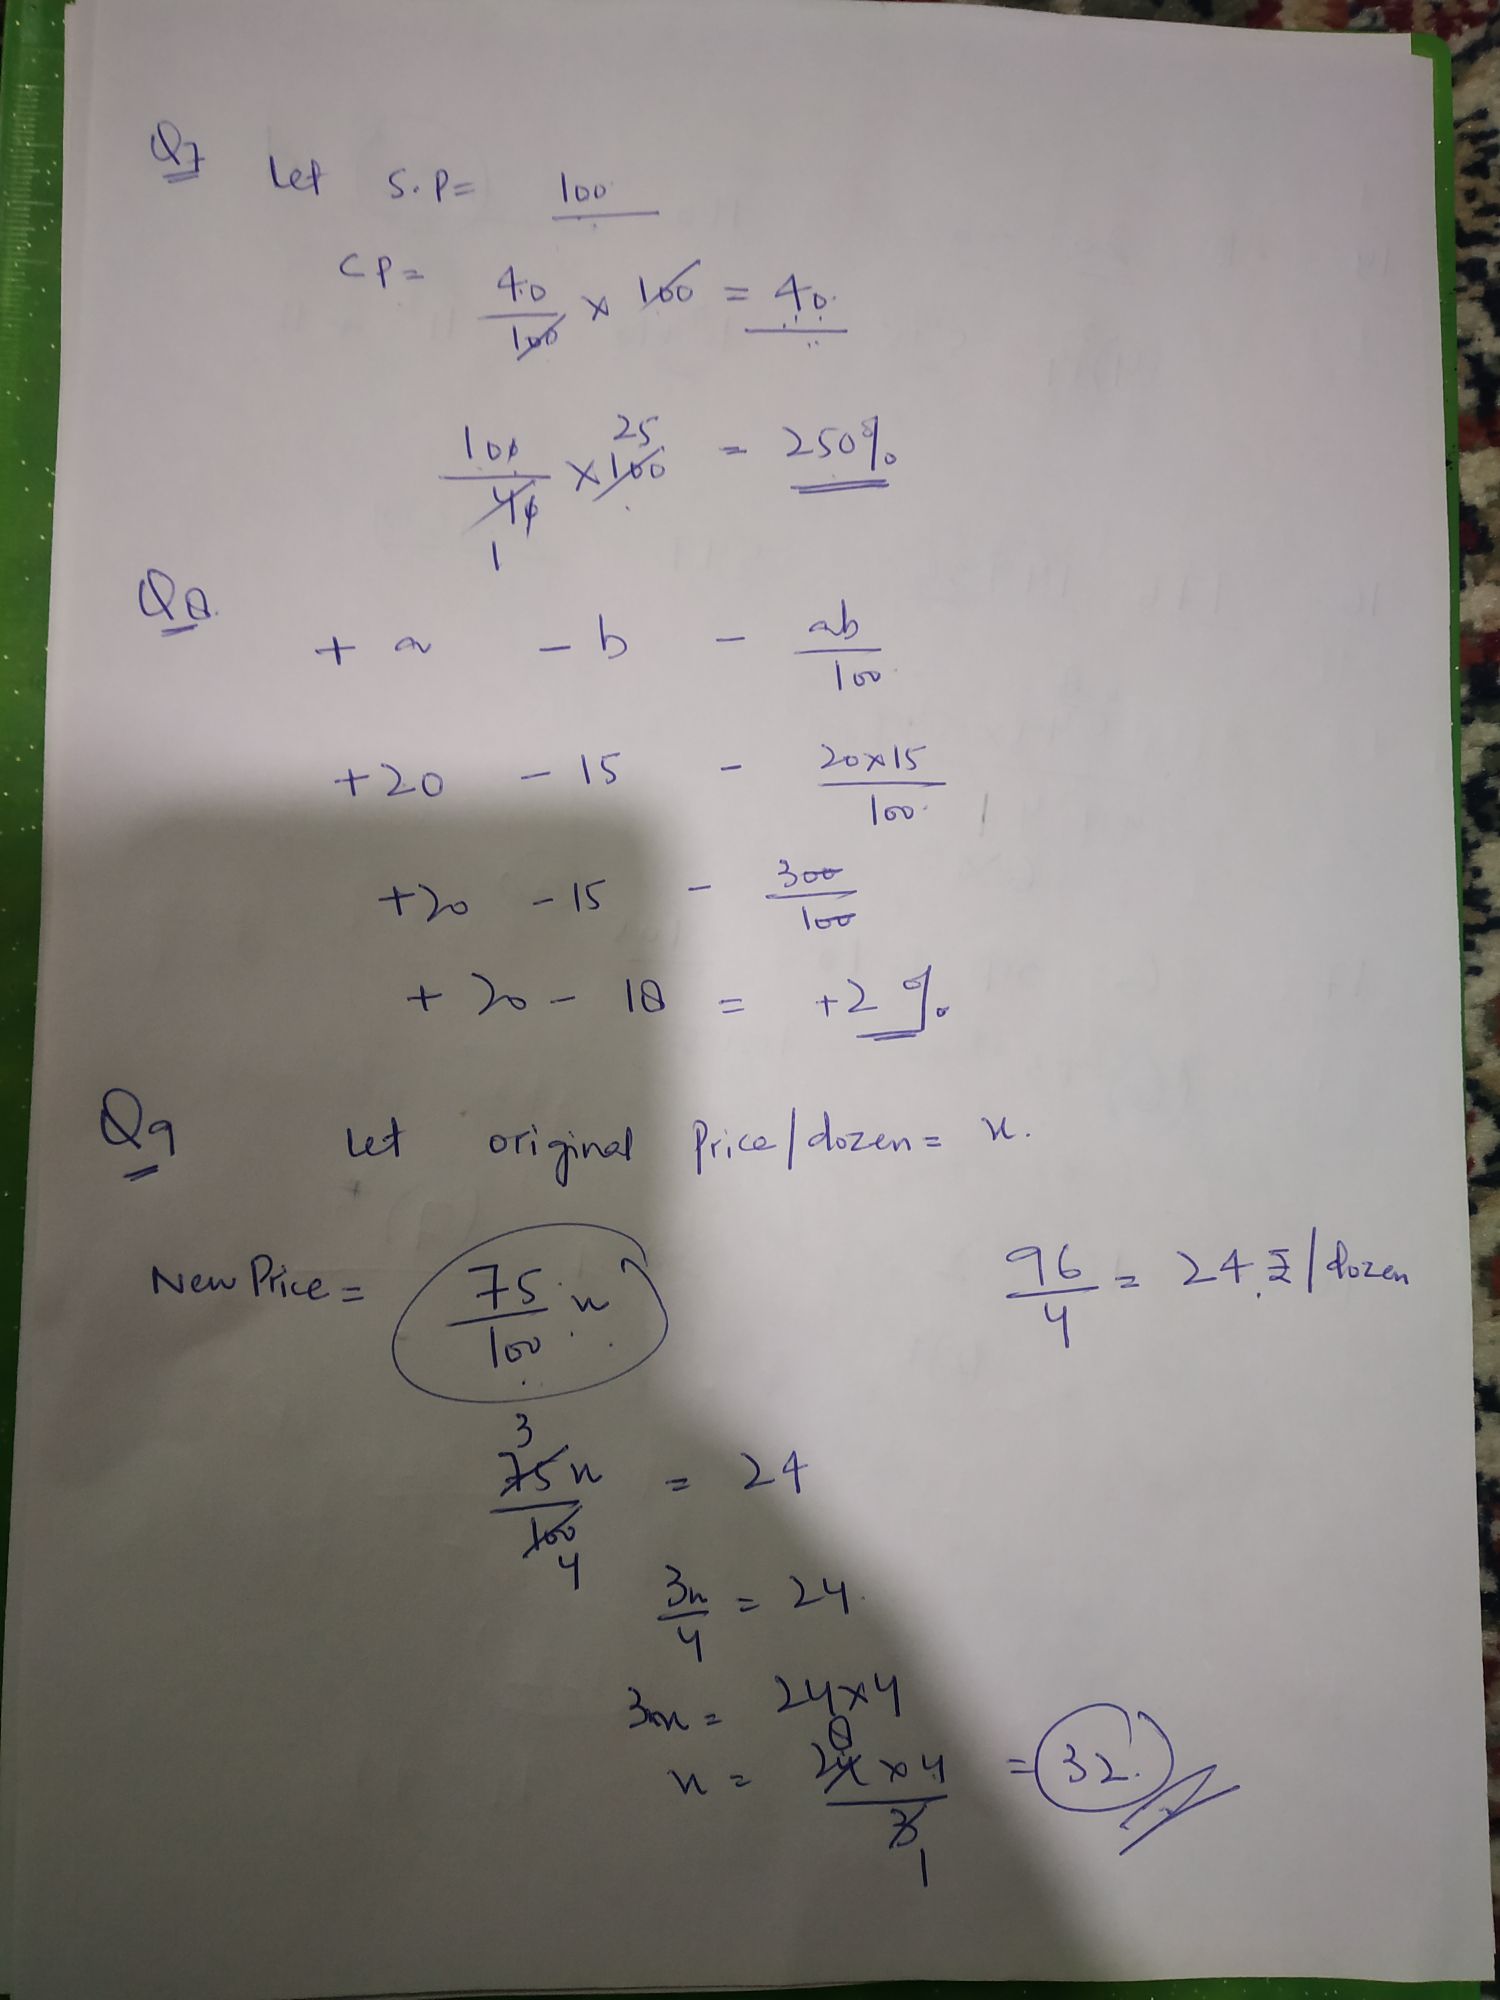 Q7 Let S.P= 100
CP= 40/100 × 100 = 40.
100/40 × 100 = 250%
25
1
Q8.
+ a - b - ab/100
+20 - 15 - 20×15/100
+20 - 15 - 300/100
+ 20 - 18 = +2%
Q9 Let original Price/dozen= x.
New Price = 75/100 x
96/4 = 24 ₹/dozen
3
75x/100 = 24
4
3x/4 = 24
3x = 24×4
8
x = 24×4/3 = 32.
1